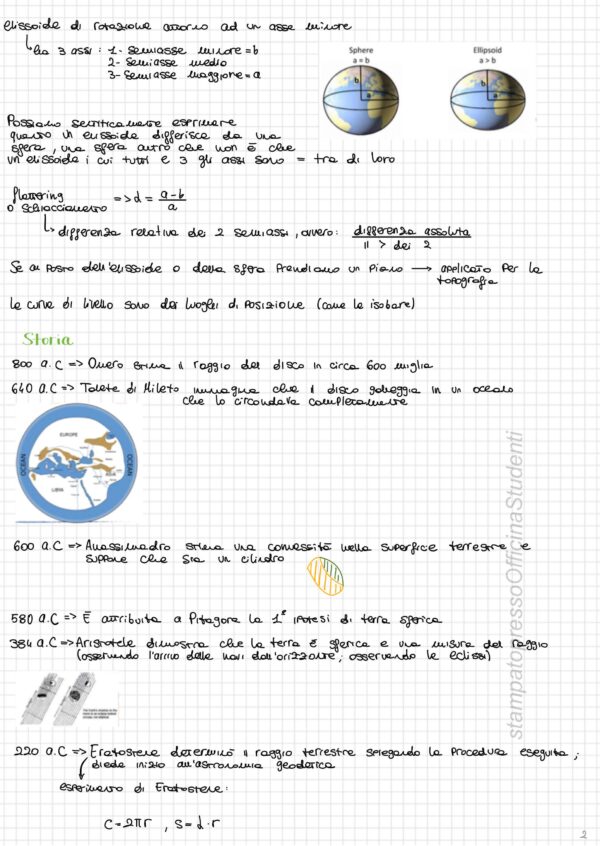 elissoide di rotazione attorno ad un asse minore
ha 3 assi : 1- semiasse minore = b
2- semiasse medio
3- semiasse maggiore = a
Sphere
a = b
b
a
Ellipsoid
a > b
b
a
Possiamo scrittecamente esprimere
quanto un elissoide differisca da una
sfera, una sfera altro che non è che
un elissoide i cui tutti e 3 gli assi sono = tra di loro
flattering
o schiacciamento => d = a-b
a
differenza relativa dei 2 semiassi, ovvero: differenza assoluta
il > dei 2
Se al posto dell'elissoide o della sfera prendiamo un piano → applicato per la
topografia
le curve di livello sono dei luoghi di posizione (come le isobare)
Storia
800 a.C => Omero stima il raggio del disco in circa 600 miglia
640 a.C => Talete di Mileto immagina che il disco galleggia in un oceano
che lo circondava completamente
OCEAN
EUROPE
ASIA
LIBYA
OCEAN
600 a.C => Anassimandro stima una convessità nella superfice terrestre e
suppone che sia un cilindro
580 a.C => È attribuita a Pitagora la 1ª ipotesi di terra sferica
384 a.C => Aristotele dimostra che la terra è sferica e una misura del raggio
(osservando l'arrivo delle navi dall'orizzonte, osservando le eclissi)
220 a.C => Eratostene determinò il raggio terrestre spiegando la procedura eseguita ;
diede inizio all'astronomia geodetica
esperimento di Eratostene:
C = 2πr , S = d · r
stampatopressoOfficinaStudenti
2